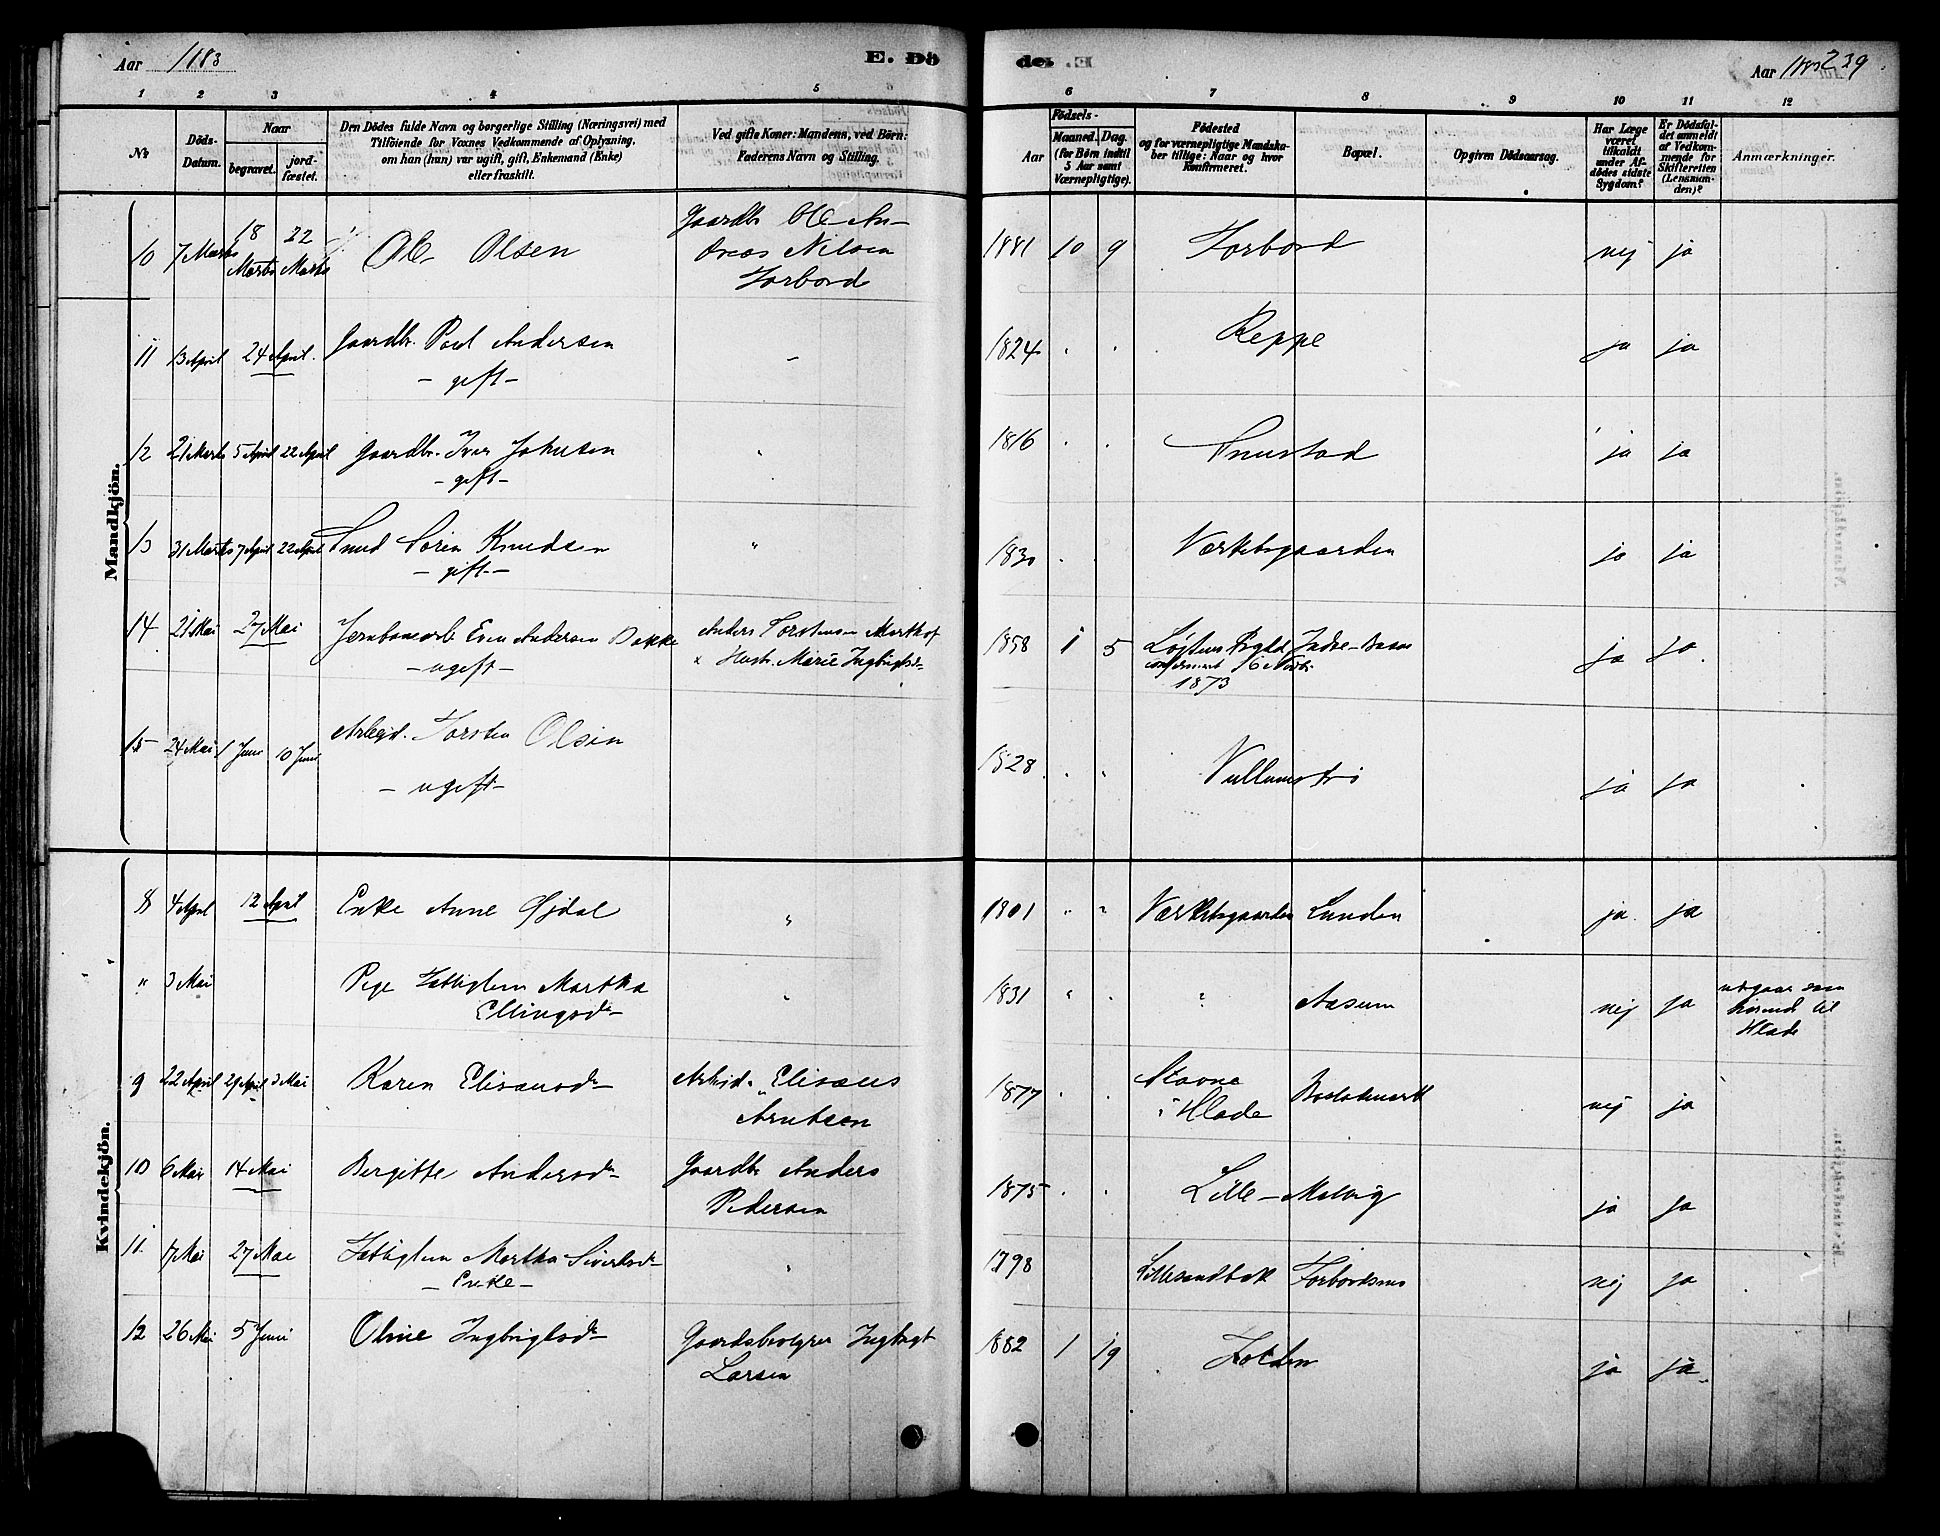 Aar 1883
E. Dö
de. E.
Aar 1883 239
1 2 3 4 5 6 7 8 9 10 11 12
Nr.
Döds-Datum.
Naar
begravet.
jord-fæstet.
Den Dödes fulde Navn og borgerlige Stilling (Næringsvei) med
Tilföiende for Voxnes Vedkommende af Oplysning,
om han (hun) var ugift, gift, Enkemand (Enke)
eller fraskilt.
Ved gifte Koner: Mandens, ved Börn:
Faderens Navn og Stilling.
Födsels-
Aar
Maaned. Dag.
(for Börn indtil
5 Aar samt
Værnepligtige).
Födested
og for værnepligtige Mandska-
ber tillige: Naar og hvor
Konfirmeret.
Bopæl.
Opgiven Dödsaarsag.
Har Læge
været
tilkaldt
under Af-
dödes sidste
Sygdom?
Er Dödsfal-
det anmeldt
af Vedkom-
mende for
Skifteretten
(Lensman-
den)?
Anmærkninger.
Mandkjön.
10 7 Marts 18 Marts 22 Marts Ole Olsen Gaardbr Ole An-
dreas Nilsen
Forbord
1881 10 9 Forbord nej ja
11 13 April 24 April. Gaardbr. Poul Andersen
- gift -
1824 Reppe ja ja
12 21 Marts 5 April 22 April Gaardbr. Iver Johnsen "
- gift -
1816 ja ja
13 31 Marts 7 April 22 April Smed Sören Knudsen "
- gift -
1830 Værketsgaarden ja ja
14 21 Mai 27 Mai Jernbanearb Even Andersen Bakke Anders Torstensen
- ugift - Marie
1858 1 5 ja ja
1873
15 24 Mai 1 Juni 10 Juni Arbejd. Torsten Olsen
- ugift -
1828 ja ja
Kvindekjön.
8 4 April 12 April Enke Anne "
1801 " " Værketsgaarden Lunden ja ja
" 3 Mai Pige Fattiglem Martha
Ellingsdr "
1831 " " Aasum nej ja
til
Hlade
9 22 April 29 April 3 Mai Karen Elisæusdr Arbejd. Elisæus
Arntsen
1877 Stavne
i Hlade nej ja
10 6 Mai 14 Mai Bergitte Andersdr Gaardbr Anders
Pedersen
1875 Lille-Malvig ja ja
11. 17 Mai 27 Mai Fattiglem Martha Sivertsdr "
- Enke -
1798 nej ja
12 26 Mai 5 Juni Oline Ingbrigtsdr Ingbrigt
Larsen
1882 1 19 ja ja.